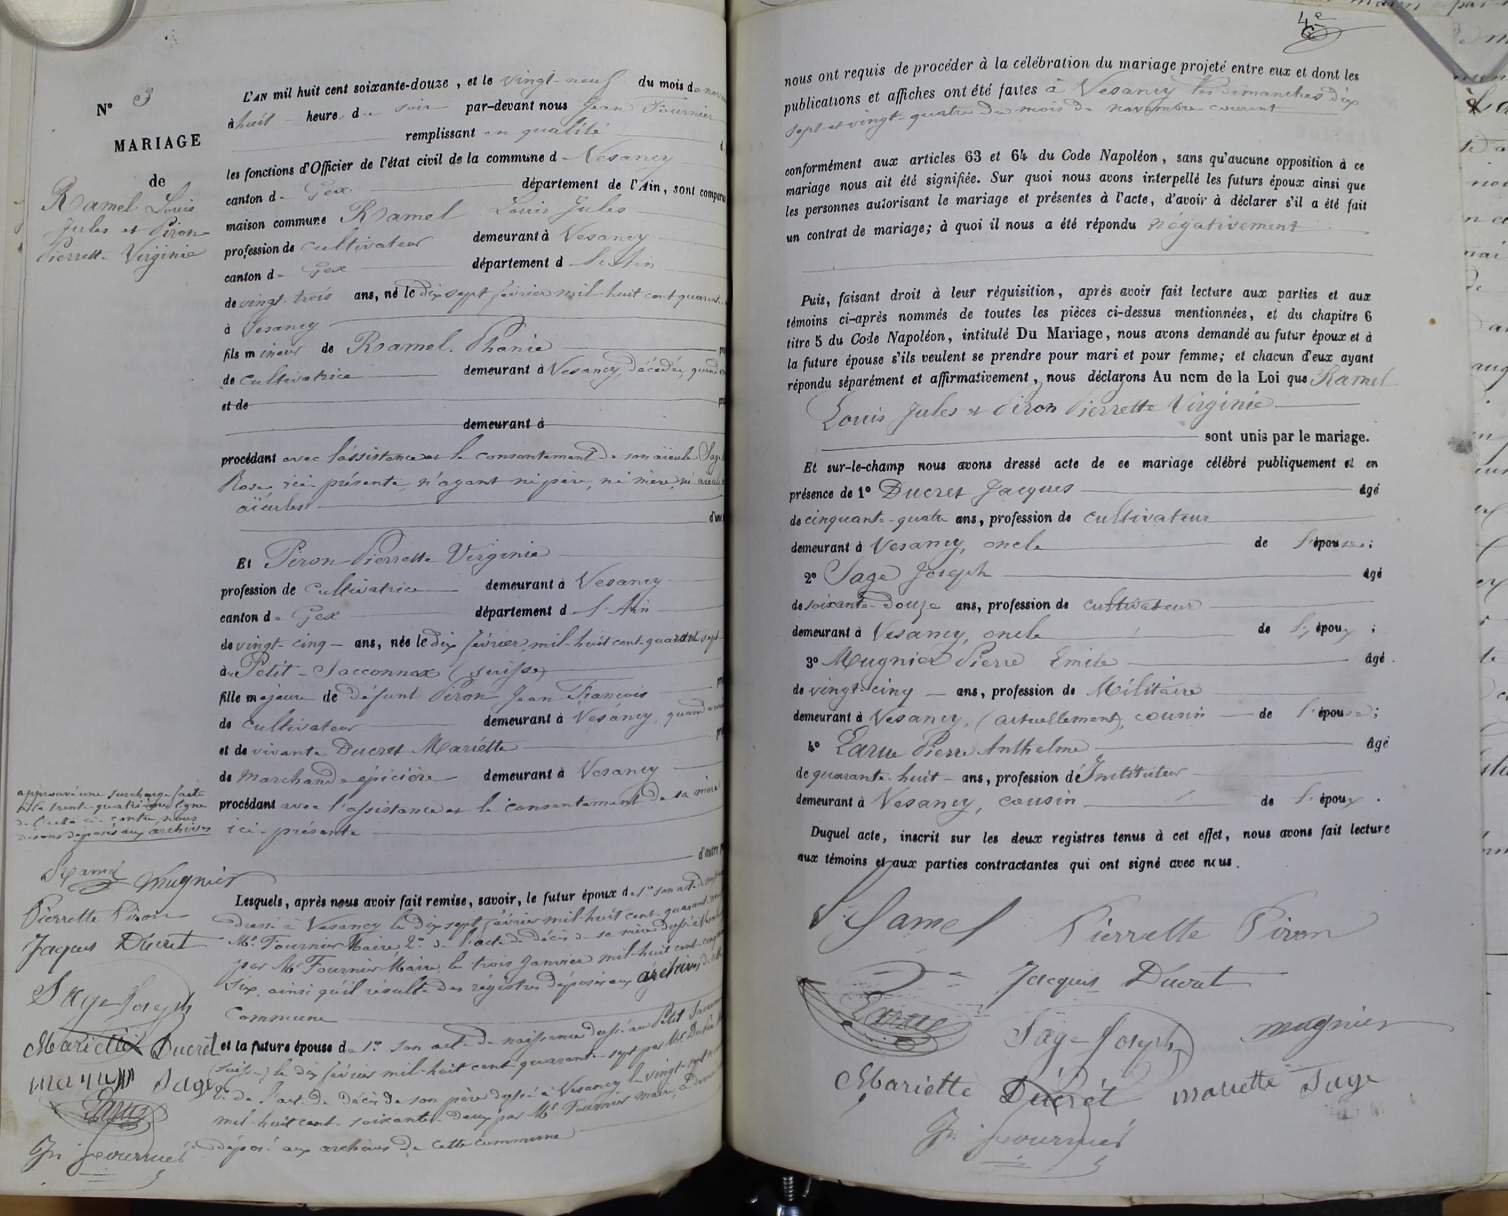 N° 3
MARIAGE
de
Ramel Louis
Jules et Piron
Pierrette Virginie
L'AN mil huit cent soixante-douze, et le vingt-neuf du mois de
à huit heure du soir par-devant nous Jean Fournier
remplissant en qualité
les fonctions d'Officier de l'état civil de la commune d Vesancy
canton d Gex département de l'Ain, sont
maison commune Ramel Louis Jules
profession de cultivateur demeurant à Vesancy
canton de Gex département d l'Ain
de vingt-trois ans, né le dix sept février mil-huit cent
à Vesancy
fils mineur de Ramel Phanie
de cultivatrice demeurant à Vesancy, décédée, quand
et de
demeurant à
procédant avec l'assistance et le consentement de son aïeule Sage
Rose, ici présente, n'ayant ni père, ni mère, ni
aïeules
Et Piron Pierrette Virginie
profession de cultivatrice demeurant à Vesancy
canton de Gex département d l'Ain
de vingt-cinq ans, née le dix février mil-huit cent-quarante sept
à Petit-Sacconnex (Suisse)
fille majeure de défunt Piron Jean François
de cultivateur demeurant à Vesancy, quand
et de vivante Ducret Mariette
de marchande épicière demeurant à Vesancy
procédant avec l'assistance et le consentement de sa mère
ici-présente
approuvé une surcharge faite
à la trente-quatrième ligne
de l'acte ci-contre, nous
disons déposés aux archives
Ramel Mugnier
Pierrette Piron
Jaques Ducret
Sage Joseph
Mariette Ducret
Sage
Larue
Jn Fournier
Lesquels, après nous avoir fait remise, savoir, le futur époux de 1° son acte de
dressé à Vesancy le dix sept février mil-huit cent-quarante
Mr Fournier Maire 2° de l'acte de décès de sa mère
par Mr Fournier Maire, le trois Janvier mil-huit cent
six, ainsi qu'il résulte des registres déposés aux archives de
commune
et la future épouse de 1° son acte de naissance dressé au Petit
(Suisse) le dix février mil-huit cent-quarante-sept par Mr
2° de l'acte de décès de son père dressé à Vesancy le vingt-sept
mil-huit cent-soixante-deux par Mr Fournier maire,
déposé aux archives de cette commune
4e
nous ont requis de procéder à la célébration du mariage projeté entre eux et dont les
publications et affiches ont été faites à Vesancy les dimanches dix
sept et vingt-quatre du mois de novembre courant
conformément aux articles 63 et 64 du Code Napoléon, sans qu'aucune opposition à ce
mariage nous ait été signifiée. Sur quoi nous avons interpellé les futurs époux ainsi que
les personnes autorisant le mariage et présentes à l'acte, d'avoir à déclarer s'il a été fait
un contrat de mariage; à quoi il nous a été répondu négativement
Puis, faisant droit à leur réquisition, après avoir fait lecture aux parties et aux
témoins ci-après nommés de toutes les pièces ci-dessus mentionnées, et du chapitre 6
titre 5 du Code Napoléon, intitulé Du Mariage, nous avons demandé au futur époux et à
la future épouse s'ils veulent se prendre pour mari et pour femme; et chacun d'eux ayant
répondu séparément et affirmativement, nous déclarons Au nom de la Loi que Ramel
Louis Jules et Piron Pierrette Virginie
sont unis par le mariage.
Et sur-le-champ nous avons dressé acte de ce mariage célébré publiquement et en
présence de 1° Ducret Jacques âgé
de cinquante-quatre ans, profession de cultivateur
demeurant à Vesancy, oncle de l'épouse;
2° Sage Joseph âgé
de soixante-douze ans, profession de cultivateur
demeurant à Vesancy, oncle de l'époux;
3° Mugnier Pierre Emile âgé
de vingt-cinq ans, profession de Militaire
demeurant à Vesancy, (actuellement), cousin de l'épouse;
4° Larue Pierre Anthelme âgé
de quarante-huit ans, profession d'Instituteur
demeurant à Vesancy, cousin de l'époux.
Duquel acte, inscrit sur les deux registres tenus à cet effet, nous avons fait lecture
aux témoins et aux parties contractantes qui ont signé avec nous.
Ramel Pierrette Piron
Jacques Ducret
Larue Sage Joseph Mugnier
Mariette Ducret Mariette Sage
Jn Fournier